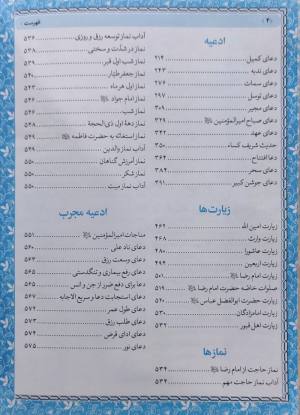 ۴۰
فهرست
ادعیه
دعای کمیل ۲۱۴
دعای ندبه ۲۴۳
دعای سمات ۲۷۶
دعای توسل ۲۹۷
دعای مجیر ۳۰۸
دعای صباح امیرالمؤمنین ۳۲۹
دعای عهد ۳۴۲
حدیث شریف کساء ۳۵۰
دعا افتتاح ۳۶۲
دعای سحر ۳۸۴
دعای جوشن کبیر ۳۹۱
زیارت‌ها
زیارت امین الله ۴۶۲
زیارت وارث ۴۶۸
زیارت عاشورا ۴۸۰
زیارت اربعین ۴۹۴
زیارت امام رضا ۵۰۱
صلوات خاصه حضرت امام رضا ۵۱۹
زیارت حضرت ابوالفضل عباس ۵۲۰
زیارت امامزادگان ۵۳۰
زیارت اهل قبور ۵۳۲
نمازها
نماز حاجت از امام رضا ۵۳۴
آداب نماز حاجت مهم ۵۳۴
آداب نماز توسعه رزق و روزی ۵۳۶
نماز در شدت و سختی ۵۳۸
نماز شب اول قبر ۵۳۹
نماز جعفر طیار ۵۴۰
نماز اول هر ماه ۵۴۳
نماز امام جواد
نماز شب
نماز دهۀ اول ذی‌الحجة ۵۴۸
نماز استغاثه به حضرت فاطمه ۵۴۹
آداب نماز والدین ۵۴۹
نماز آمرزش گناهان ۵۵۰
نماز شکر ۵۵۰
آداب نماز میت ۵۵۰
ادعیه مجرب
مناجات امیرالمؤمنین ۵۵۱
دعای ناد علی ۵۶۰
دعای وسعت رزق ۵۶۳
دعای رفع بیماری و تنگدستی ۵۶۵
دعا برای دفع ضرر از جن و انس ۵۶۵
دعای استجابت دعا و سریع الاجابه ۵۶۷
دعای طول عمر ۵۷۲
دعای طلب رزق ۵۷۳
دعای ادای قرض ۵۷۴
دعای نور ۵۷۵